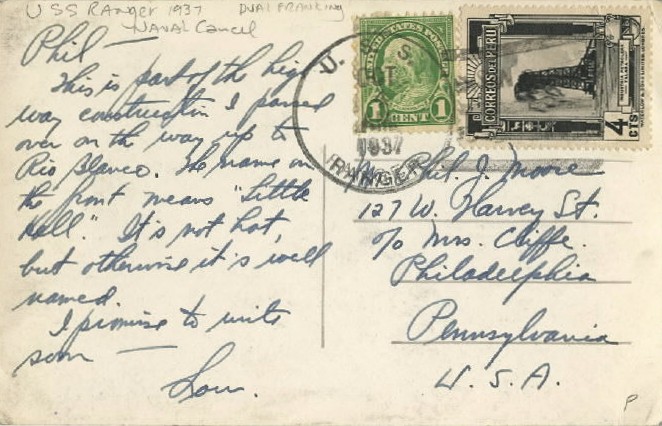 USS Ranger 1937 DUAL FRANKING
NAVAL Cancel
Phil —
This is part of the high
way construction I passed
over on the way up to
Rio Blanco. The name on
the front means "Little
Hell." It's not hot,
but otherwise it's well
named.
I promise to write
soon —
Lou.
UNITED STATES POSTAGE
1 CENT 1
U. S. S.
1937
RANGER
CORREOS DEL PERU
4 CTS
Mr. Phil. J. Moore
127 W. Harvey St.
c/o Mrs. Cliffe.
Philadelphia
Pennsylvania
U. S. A.
P